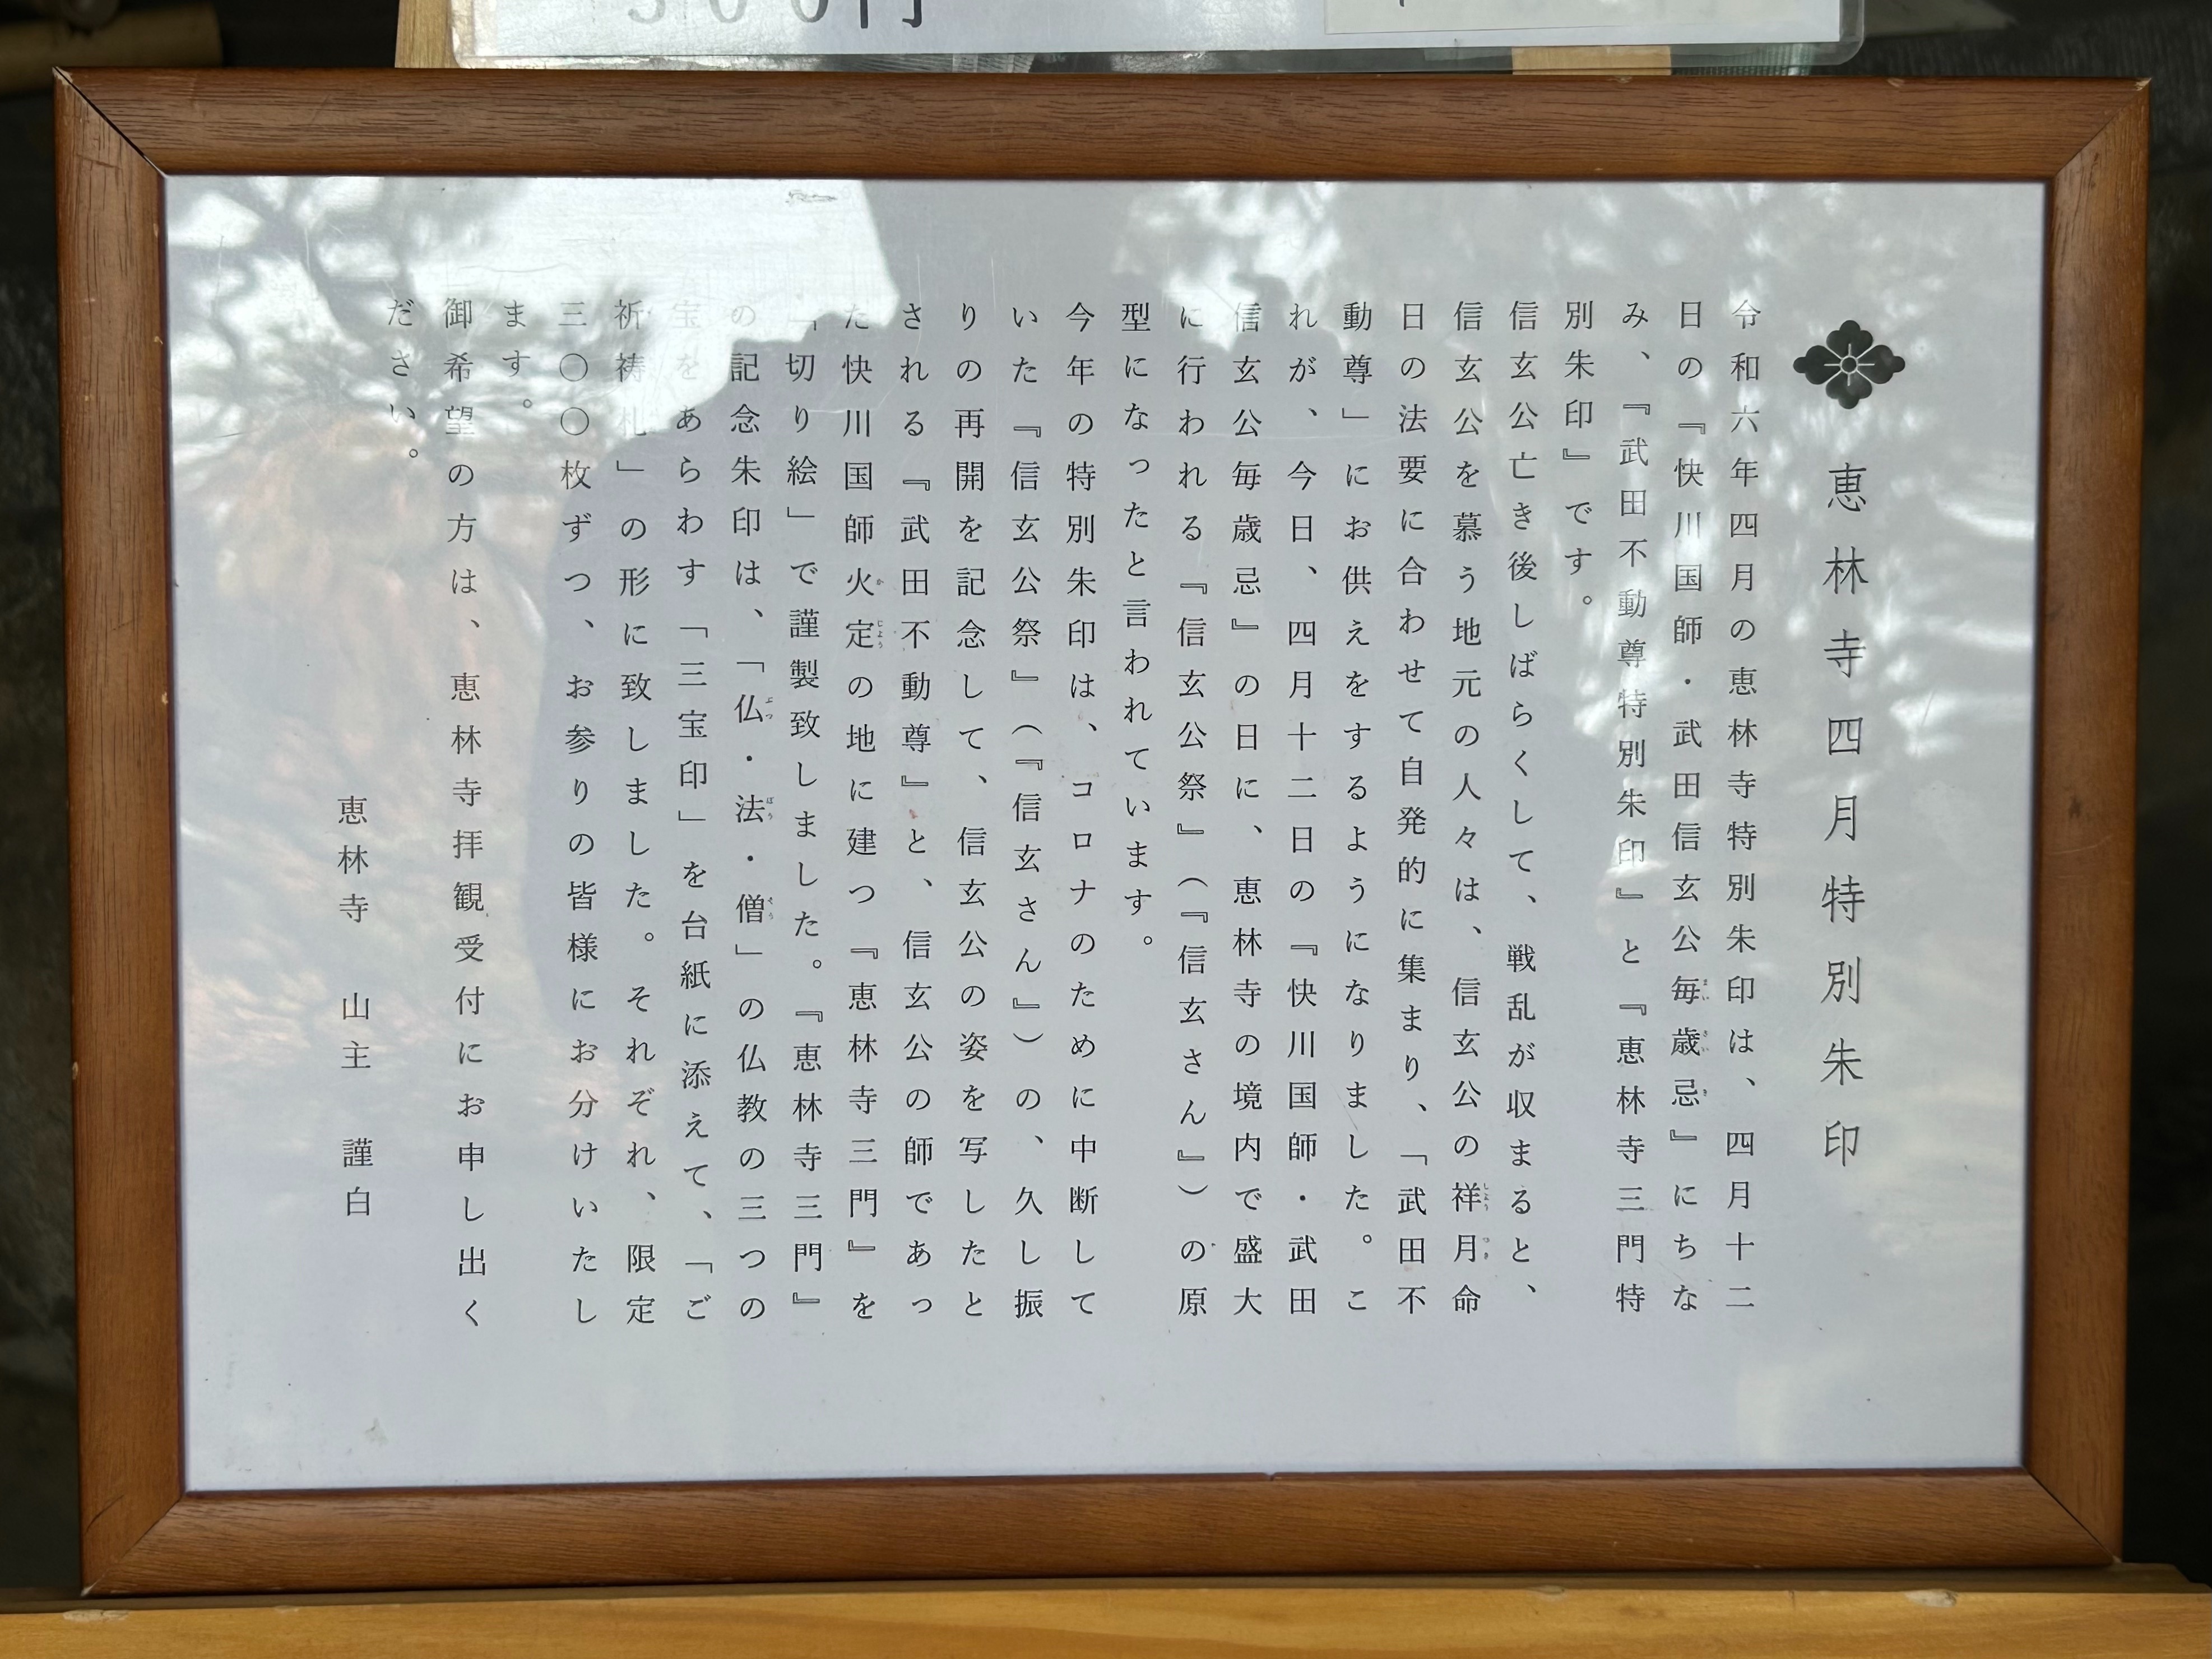 300円
恵林寺四月特別朱印
令和六年四月の恵林寺特別朱印は、四月十二
日の『快川国師・武田信玄公毎歳忌』にちな
み、『武田不動尊特別朱印』と『恵林寺三門特
別朱印』です。
信玄公亡き後しばらくして、戦乱が収まると、
信玄公を慕う地元の人々は、信玄公の祥月命
日の法要に合わせて自発的に集まり、「武田不
動尊」にお供えをするようになりました。こ
れが、今日、四月十二日の『快川国師・武田
信玄公毎歳忌』の日に、恵林寺の境内で盛大
に行われる『信玄公祭』（『信玄さん』）の原
型になったと言われています。
今年の特別朱印は、コロナのために中断して
いた『信玄公祭』（『信玄さん』）の、久し振
りの再開を記念して、信玄公の姿を写したと
される『武田不動尊』と、信玄公の師であっ
た快川国師火定の地に建つ『恵林寺三門』を
「切り絵」で謹製致しました。『恵林寺三門』
の記念朱印は、「仏・法・僧」の仏教の三つの
宝をあらわす「三宝印」を台紙に添えて、「ご
祈祷札」の形に致しました。それぞれ、限定
三〇〇枚ずつ、お参りの皆様にお分けいたし
ます。
御希望の方は、恵林寺拝観受付にお申し出く
ださい。
恵林寺　山主　謹白